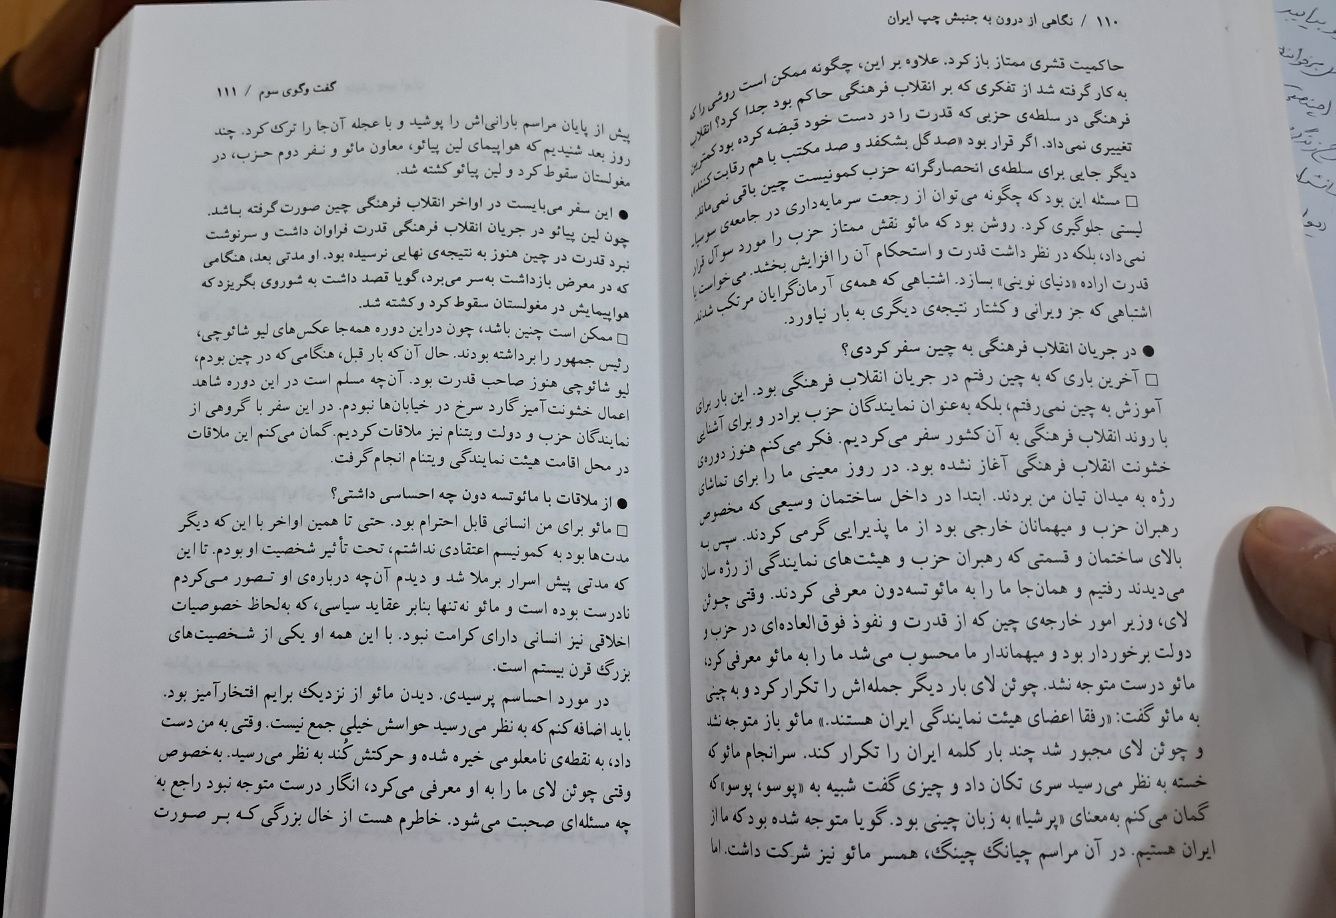 ۱۱۰ / نگاهی از درون به جنبش چپ ایران
حاکمیت قشری ممتاز باز کرد. علاوه بر این، چگونه ممکن است روشی را که
به کار گرفته شد از تفکری که بر انقلاب فرهنگی حاکم بود جدا کرد؟ انقلاب
فرهنگی در سلطه‌ی حزبی که قدرت را در دست خود قبضه کرده بود کمترین
تغییری نمی‌داد. اگر قرار بود «صد گل بشکفد و صد مکتب با هم رقابت کنند»
دیگر جایی برای سلطه‌ی انحصارگرانه حزب کمونیست چین باقی نمی‌ماند.
□ مسئله این بود که چگونه می‌توان از رجعت سرمایه‌داری در جامعه‌ی سوسیا
لیستی جلوگیری کرد. روشن بود که مائو نقش ممتاز حزب را مورد سوآل قرار
نمی‌داد، بلکه در نظر داشت قدرت و استحکام آن را افزایش بخشد. می‌خواست با
قدرت اراده «دنیای نوینی» بسازد. اشتباهی که همه‌ی آرمان‌گرایان مرتکب شدند.
اشتباهی که جز ویرانی و کشتار نتیجه‌ی دیگری به بار نیاورد.
● در جریان انقلاب فرهنگی به چین سفر کردی؟
□ آخرین باری که به چین رفتم در جریان انقلاب فرهنگی بود. این بار برای
آموزش به چین نمی‌رفتم، بلکه به‌عنوان نمایندگان حزب برادر و برای آشنایی
با روند انقلاب فرهنگی به آن کشور سفر می‌کردیم. فکر می‌کنم هنوز دوره‌ی
خشونت انقلاب فرهنگی آغاز نشده بود. در روز معینی ما را برای تماشای
رژه به میدان تیان من بردند. ابتدا در داخل ساختمان وسیعی که مخصوص
رهبران حزب و میهمانان خارجی بود از ما پذیرایی گرمی کردند. سپس به
بالای ساختمان و قسمتی که رهبران حزب و هیئت‌های نمایندگی از رژه سان
می‌دیدند رفتیم و همان‌جا ما را به مائو تسه‌دون معرفی کردند. وقتی چوئن
لای، وزیر امور خارجه‌ی چین که از قدرت و نفوذ فوق‌العاده‌ای در حزب و
دولت برخوردار بود و میهماندار ما محسوب می‌شد ما را به مائو معرفی کرد،
مائو درست متوجه نشد. چوئن لای بار دیگر جمله‌اش را تکرار کرد و به چینی
به مائو گفت: «رفقا اعضای هیئت نمایندگی ایران هستند.» مائو باز متوجه نشد
و چوئن لای مجبور شد چند بار کلمه ایران را تکرار کند. سرانجام مائو که
خسته به نظر می‌رسید سری تکان داد و چیزی گفت شبیه به «پو سو، پوسو» که
گمان می‌کنم به‌معنای «پرشیا» به زبان چینی بود. گویا متوجه شده بود که ما از
ایران هستیم. در آن مراسم چیانگ چینگ، همسر مائو نیز شرکت داشت. اما
گفت وگوی سوم / ۱۱۱
پیش از پایان مراسم بارانی‌اش را پوشید و با عجله آن‌جا را ترک کرد. چند
روز بعد شنیدیم که هواپیمای لین پیائو، معاون مائو و نفر دوم حزب، در
مغولستان سقوط کرد و لین پیائو کشته شد.
● این سفر می‌بایست در اواخر انقلاب فرهنگی چین صورت گرفته باشد.
چون لین پیائو در جریان انقلاب فرهنگی قدرت فراوان داشت و سرنوشت
نبرد قدرت در چین هنوز به نتیجه‌ی نهایی نرسیده بود. او مدتی بعد، هنگامی
که در معرض بازداشت به‌سر می‌برد، گویا قصد داشت به شوروی بگریزد که
هواپیمایش در مغولستان سقوط کرد و کشته شد.
□ ممکن است چنین باشد، چون دراین دوره همه‌جا عکس‌های لیو شائوچی،
رئیس جمهور را برداشته بودند. حال آن‌که بار قبل، هنگامی‌که در چین بودم،
لیو شائوچی هنوز صاحب قدرت بود. آن‌چه مسلم است در این دوره شاهد
اعمال خشونت‌آمیز گارد سرخ در خیابان‌ها نبودم. در این سفر با گروهی از
نمایندگان حزب و دولت ویتنام نیز ملاقات کردیم. گمان می‌کنم این ملاقات
در محل اقامت هیئت نمایندگی ویتنام انجام گرفت.
● از ملاقات با مائوتسه دون چه احساسی داشتی؟
□ مائو برای من انسانی قابل احترام بود. حتی تا همین اواخر با این‌که دیگر
مدت‌ها بود به کمونیسم اعتقادی نداشتم، تحت تأثیر شخصیت او بودم. تا این
که مدتی پیش اسرار برملا شد و دیدم آن‌چه درباره‌ی او تصور می‌کردم
نادرست بوده است و مائو نه‌تنها بنابر عقاید سیاسی، که به‌لحاظ خصوصیات
اخلاقی نیز انسانی دارای کرامت نبود. با این همه او یکی از شخصیت‌های
بزرگ قرن بیستم است.
در مورد احساسم پرسیدی. دیدن مائو از نزدیک برایم افتخارآمیز بود.
باید اضافه کنم که به نظر می‌رسید حواسش خیلی جمع نیست. وقتی به من دست
داد، به نقطه‌ی نامعلومی خیره شده و حرکتش کُند به نظر می‌رسید. به‌خصوص
وقتی چوئن لای ما را به او معرفی می‌کرد، انگار درست متوجه نبود راجع به
چه مسئله‌ای صحبت می‌شود. خاطرم هست از خال بزرگی که بر صورت